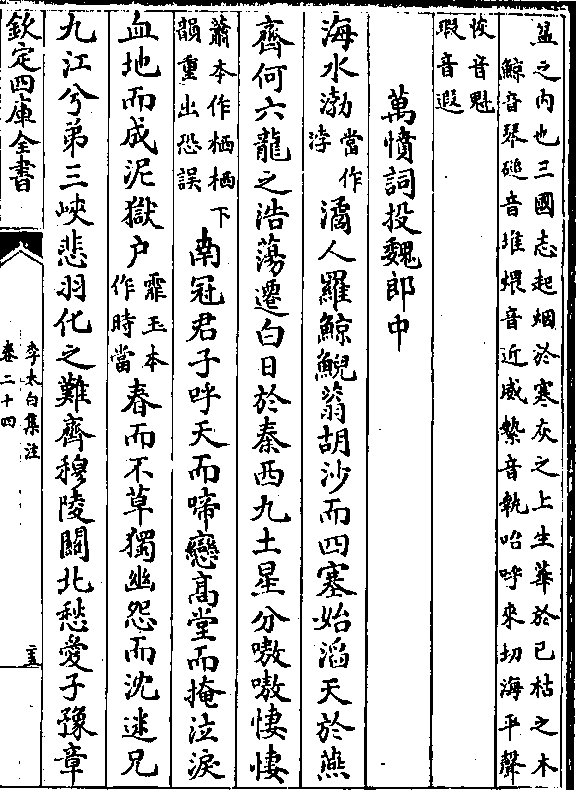 盆之内也三國志起烟於寒灰之上生華於已枯之木
鯨音琴磓音堆煨音近威縶音執咍呼來切海平聲
恢音魁
瑕音遐
萬憤詞投魏郎中
海水渤當作浡潏人羅鯨鯢蓊胡沙而四塞始滔天於燕
齊何六龍之浩蕩遷白日於秦西九土星分嗷嗷悽悽
蕭本作栖栖下韻重出恐誤南冠君子呼天而啼戀高堂而掩泣淚
血地而成泥獄户霏玉本作時當春而不草獨幽怨而沈迷兄
九江兮弟三峽悲羽化之難齊穆陵關北愁愛子豫章
欽定四庫全書
李太白集注
卷二十四